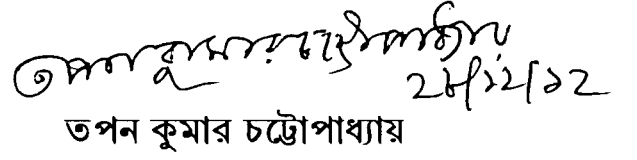 তপন কুমার চট্টোপাধ্যায়
২৮/১২/১২
তপন কুমার চট্টোপাধ্যায়